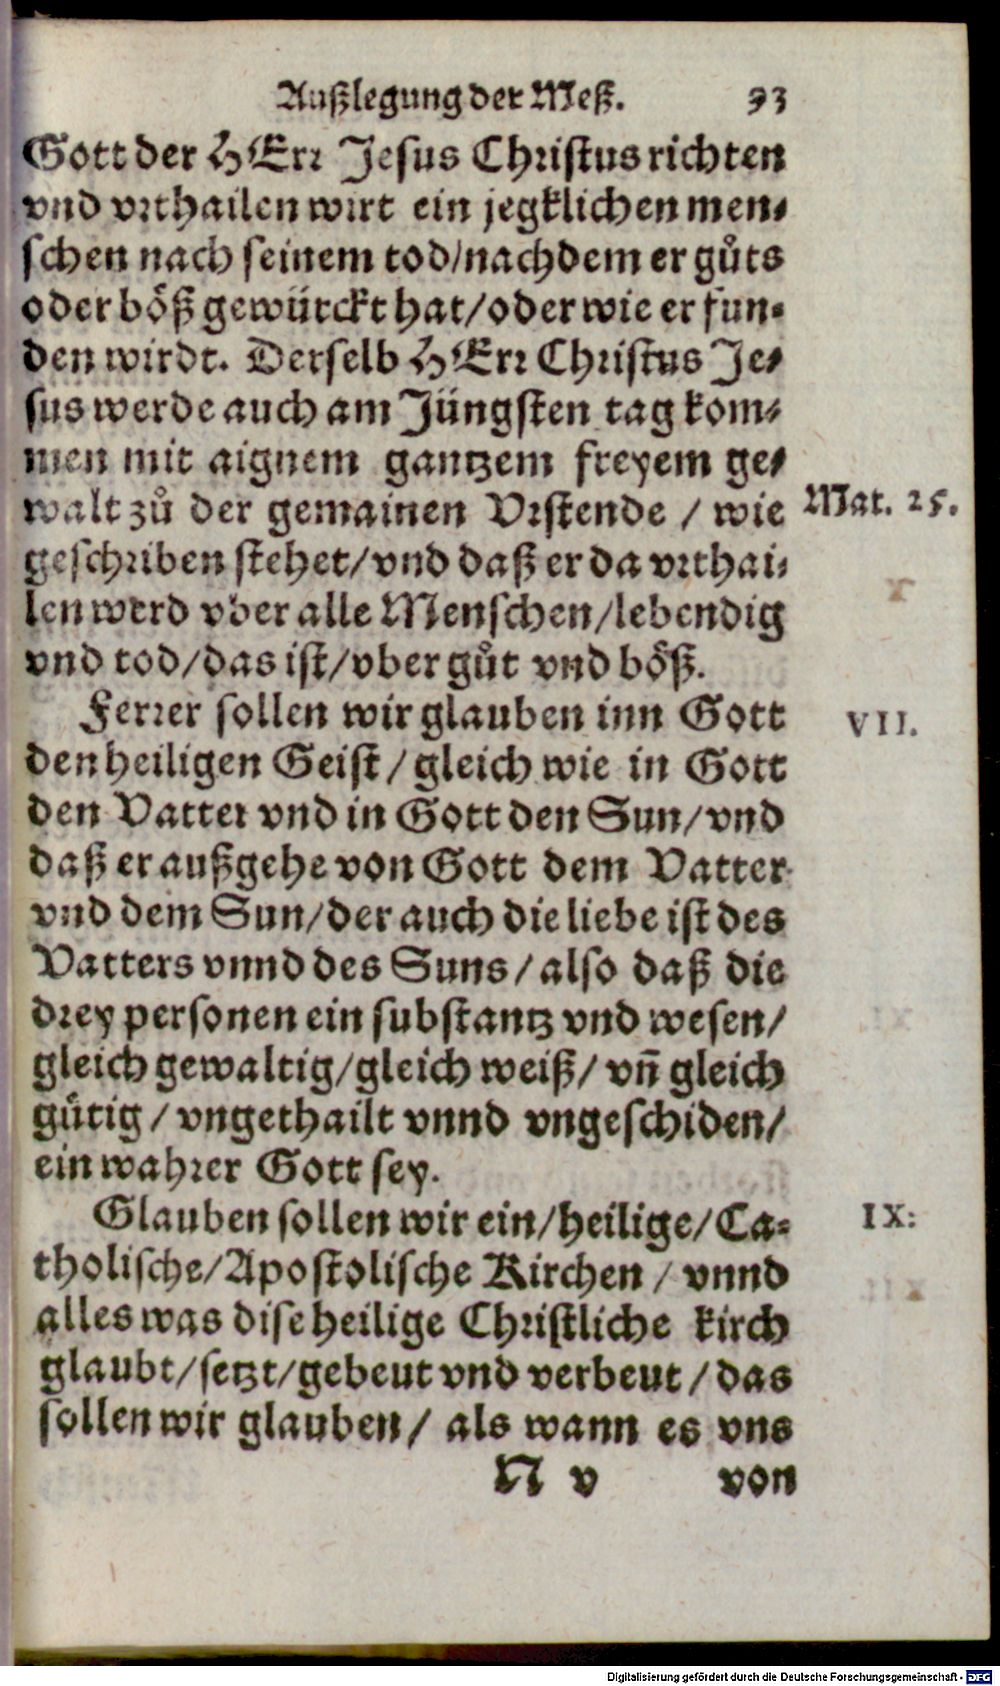 Außlegung der Meß. 93
Gott der HErr Jesus Christus richten
vnd vrthailen wirt ein jegklichen men-
schen nach seinem tod/nachdem er gůts
oder böß gewürckt hat/oder wie er fun-
den wirdt. Derselb HErr Christus Je-
sus werde auch am Jüngsten tag kom-
men mit aignem gantzem freyem ge-
walt zů der gemainen Vrstende / wie
Mat. 25.
geschriben stehet/vnd daß er da vrthai-
len werd vber alle Menschen/lebendig
vnd tod/das ist/vber gůt vnd böß.
Ferrer sollen wir glauben inn Gott
VII.
den heiligen Geist/gleich wie in Gott
den Vatter vnd in Gott den Sun/vnd
daß er außgehe von Gott dem Vatter
vnd dem Sun/der auch die liebe ist des
Vatters vnnd des Suns/also daß die
drey personen ein substantz vnd wesen/
gleich gewaltig/gleich weiß/vñ gleich
gütig/vngethailt vnnd vngeschiden/
ein wahrer Gott sey.
Glauben sollen wir ein/heilige/Ca-
IX:
tholische/Apostolische Kirchen/vnnd
alles was dise heilige Christliche kirch
glaubt/setzt/gebeut vnd verbeut/das
sollen wir glauben/als wann es vns
N v von
Digitalisierung gefördert durch die Deutsche Forschungsgemeinschaft - DFG